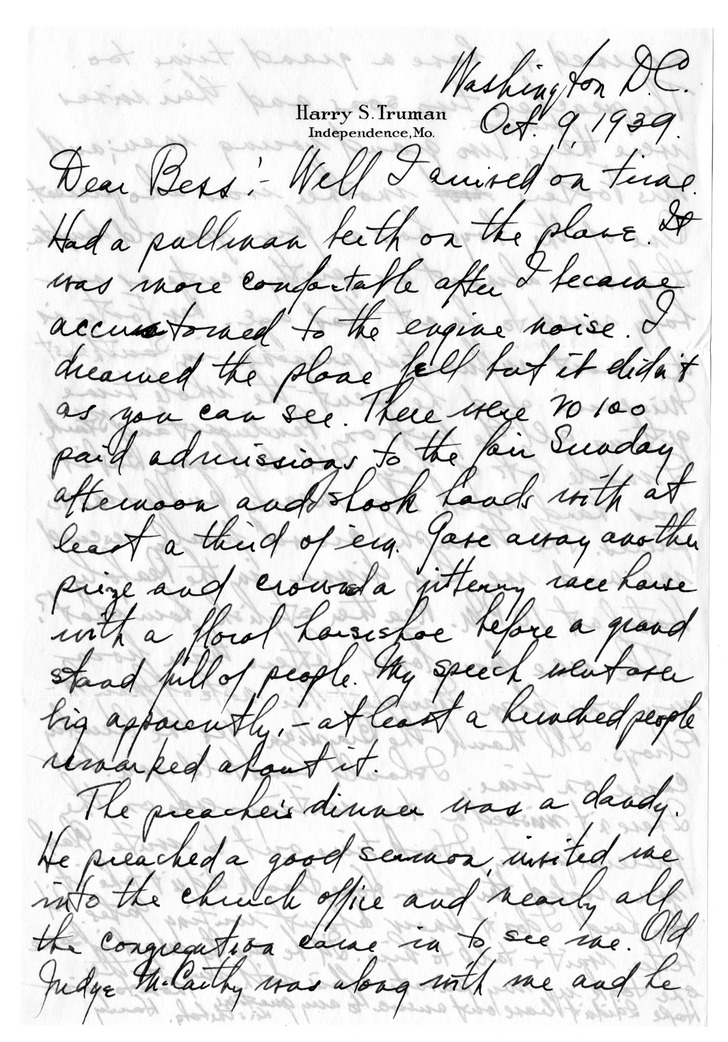 Washington D.C.
Harry S. Truman
Independence, Mo.
Oct. 9, 1939.
Dear Bess:- Well I arrived on time.
Had a pullman berth on the plane. It
was more comfortable after I became
accustomed to the engine noise. I
dreamed the plane fell but it didn't
as you can see. There were 20 100
paid admissions to the fair Sunday
afternoon and I shook hands with at
least a third of 'em. Gave away another
prize and crowned a jittery race horse
with a floral horseshoe before a grand
stand full of people. My speech went over
big apparently, - at least a hundred people
remarked about it.
The preacher's dinner was a dandy.
He preached a good sermon, invited me
into the church office and nearly all
the congregation came in to see me. Old
Judge McCarthy was along with me and he